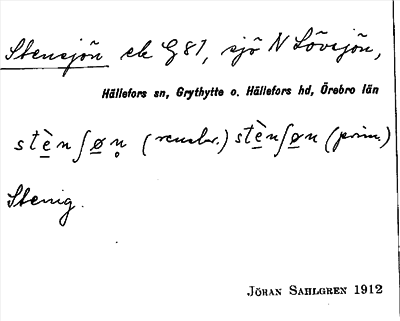 Stensjön ek G 87, sjö N Lövsjön,
Hällefors sn, Grythytte o. Hällefors hd, Örebro län
stè̱nʃø̱n̥ (renskr.) stè̱nʃø̱n (prim.)
Stenig.
JÖRAN SAHLGREN 1912